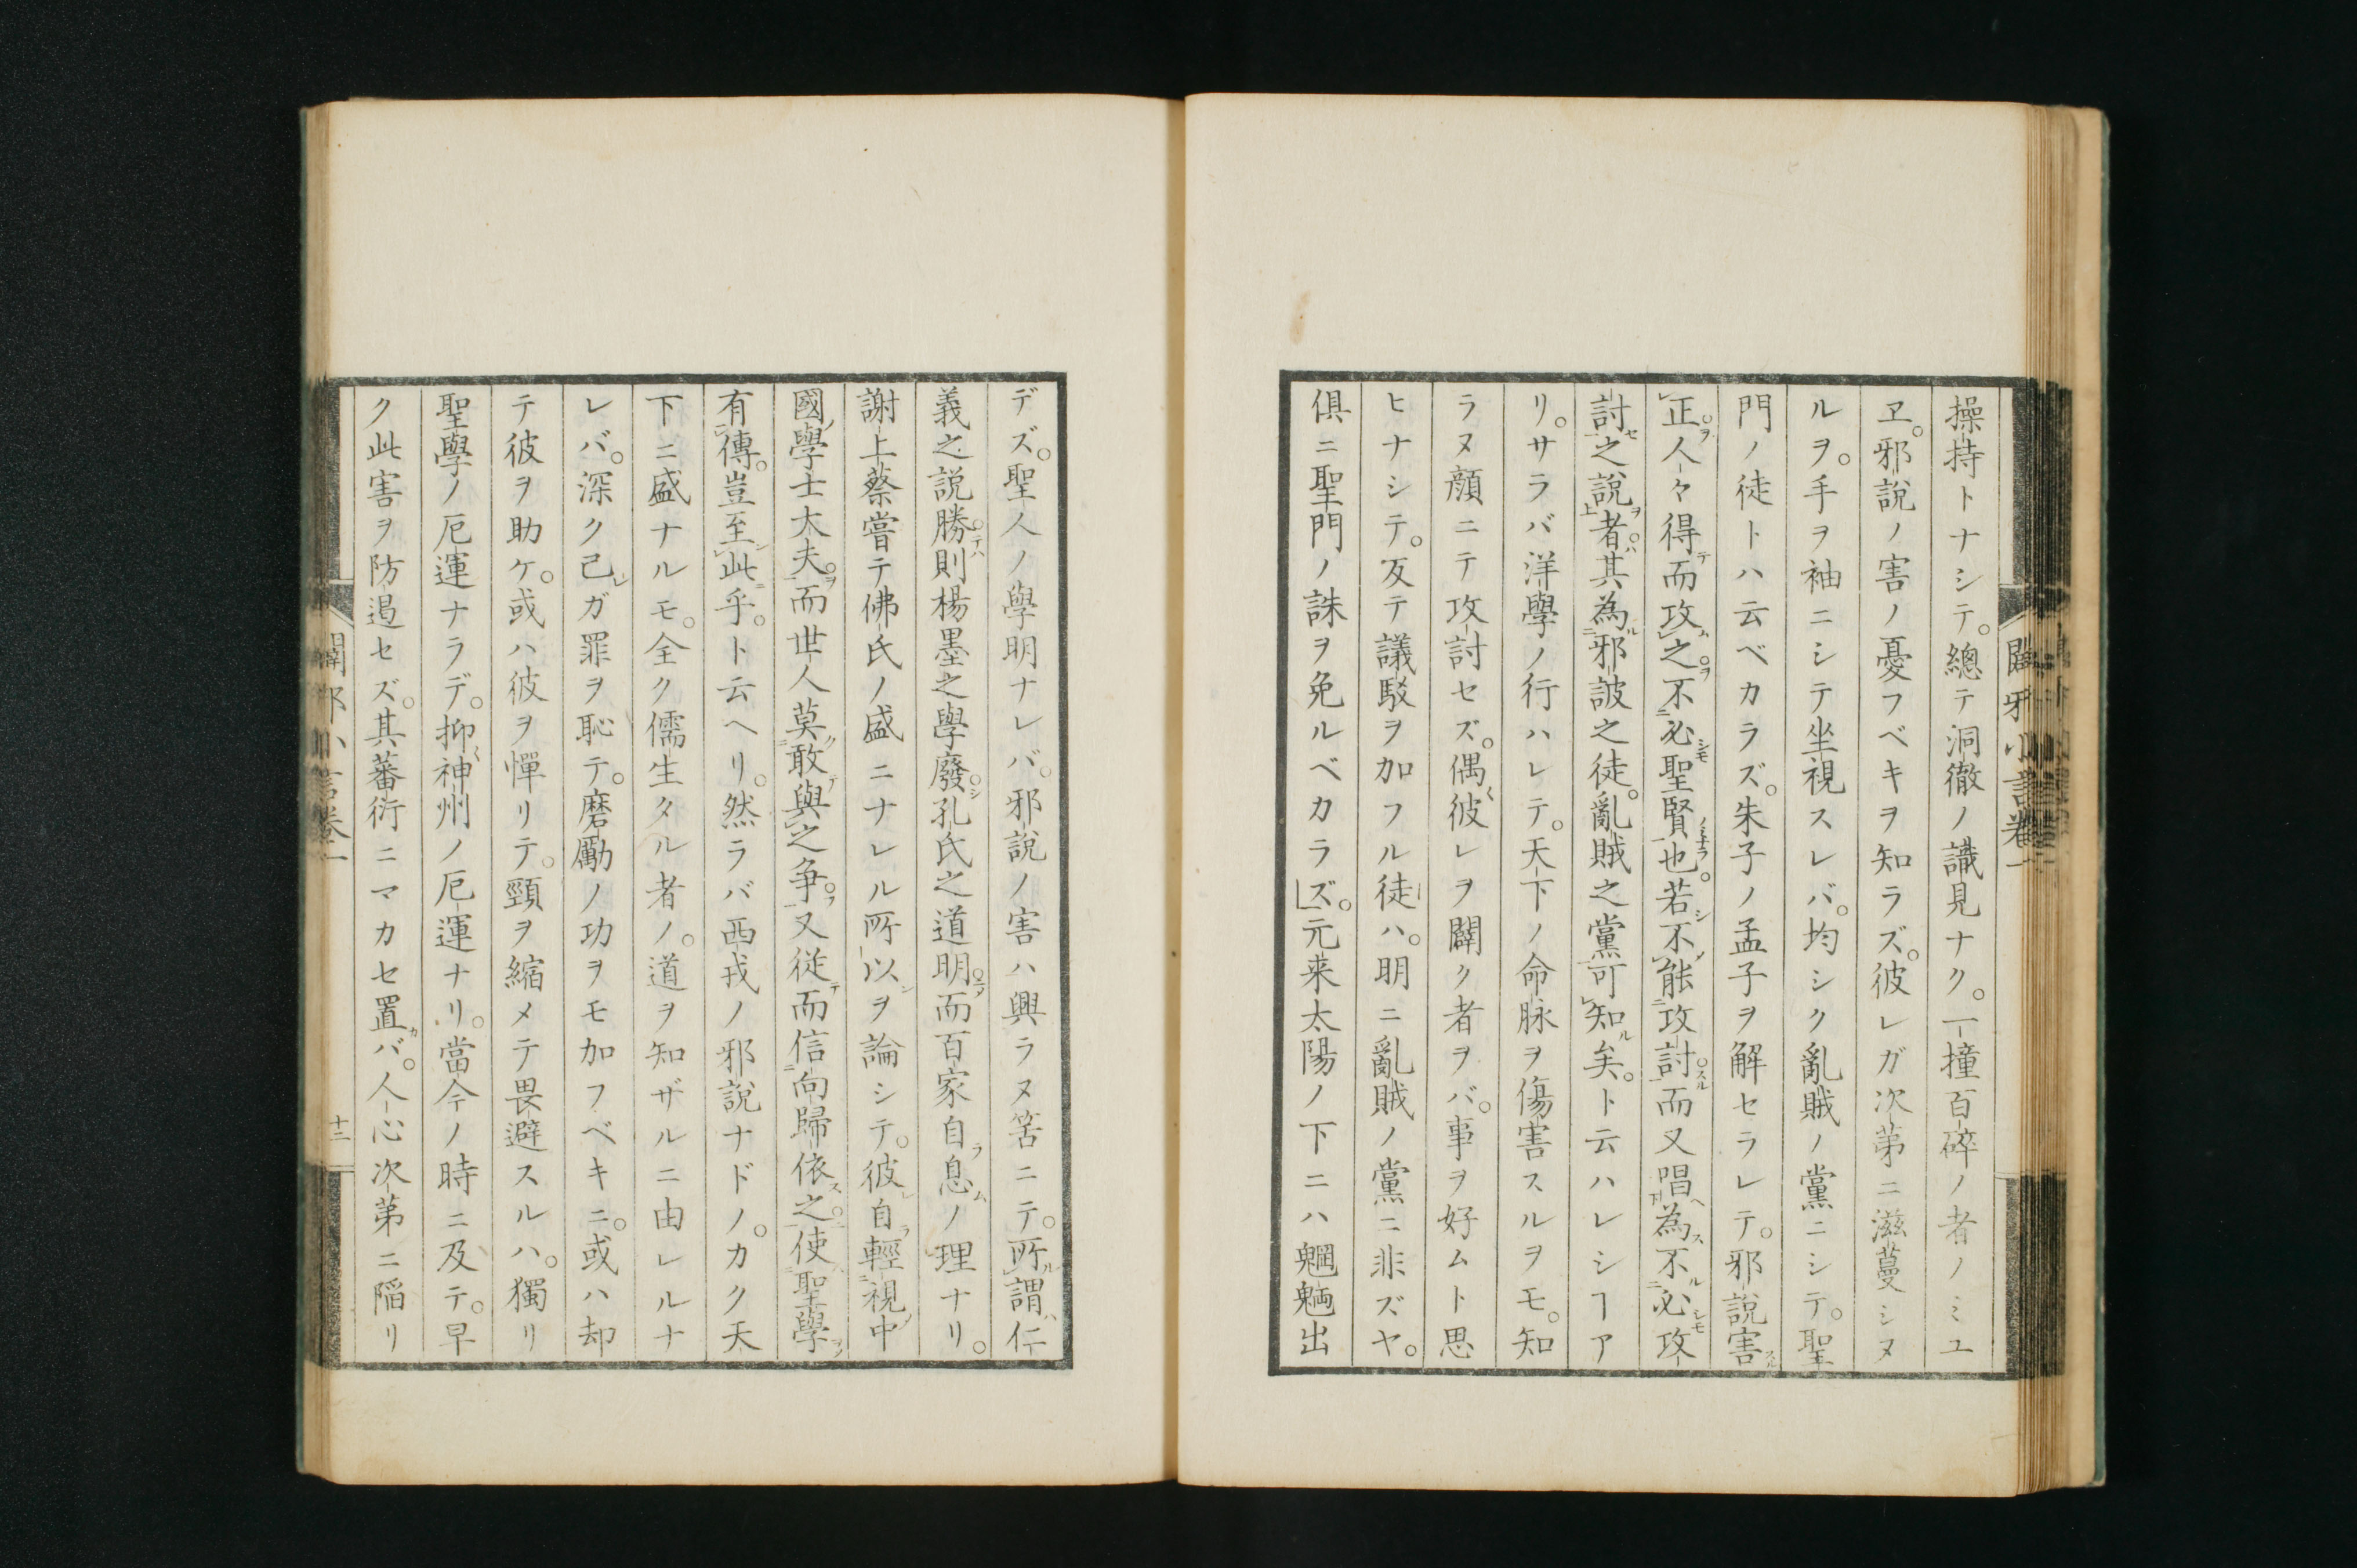 操持トナシテ。總テ洞徹ノ識見ナク。一撞百碎ノ者ノミユ
ヱ。邪說ノ害ノ憂フベキヲ知ラズ。彼レガ次第ニ滋蔓シヌ
ルヲ。手ヲ袖ニシテ坐視スレバ。均シク亂賊ノ黨ニシテ。聖
門ノ徒トハ云ベカラズ。朱子ノ孟子ヲ解セラレテ。邪說害
正。人々得而攻之。不必聖賢也。若不能攻討。而又唱為不必攻
討之說者。其為邪詖之徒。亂賊之黨可知矣。ト云ハレシヿア
リ。サラバ洋學ノ行ハレテ。天下ノ命脉ヲ傷害スルヲモ。知
ラヌ顔ニテ攻討セズ。偶彼レヲ闢ク者ヲバ。事ヲ好ムト思
ヒナシテ。反テ議駁ヲ加フル徒ハ。明ニ亂賊ノ黨ニ非ズヤ。
俱ニ聖門ノ誅ヲ免ルベカラズ。元来太陽ノ下ニハ魍魎出
闢邪小言卷一
デズ。聖人ノ學明ナレバ。邪說ノ害ハ興ラヌ筈ニテ。所謂仁
義之説勝則楊墨之學廢。孔氏之道明而百家自息ノ理ナリ。
謝上蔡嘗テ佛氏ノ盛ニナレル所以ヲ論シテ。彼自輕視中
國學士大夫。而世人莫敢與之争。又従而信向歸依之。使聖學
有傳。豈至此乎。ト云ヘリ。然ラバ西戎ノ邪說ナドノ。カク天
下ニ盛ナルモ。全ク儒生タル者ノ。道ヲ知ザルニ由レルナ
レバ。深ク己ガ罪ヲ恥テ。磨勵ノ功ヲモ加フベキニ。或ハ却
テ彼ヲ助ケ。或ハ彼ヲ憚リテ。頸ヲ縮メテ畏避スルハ。獨リ
聖學ノ厄運ナラデ。抑神州ノ厄運ナリ。當今ノ時ニ及テ。早
ク此害ヲ防遏セズ。其蕃衍ニマカセ置バ。人心次第ニ陷リ
闢邪小言卷一
十二